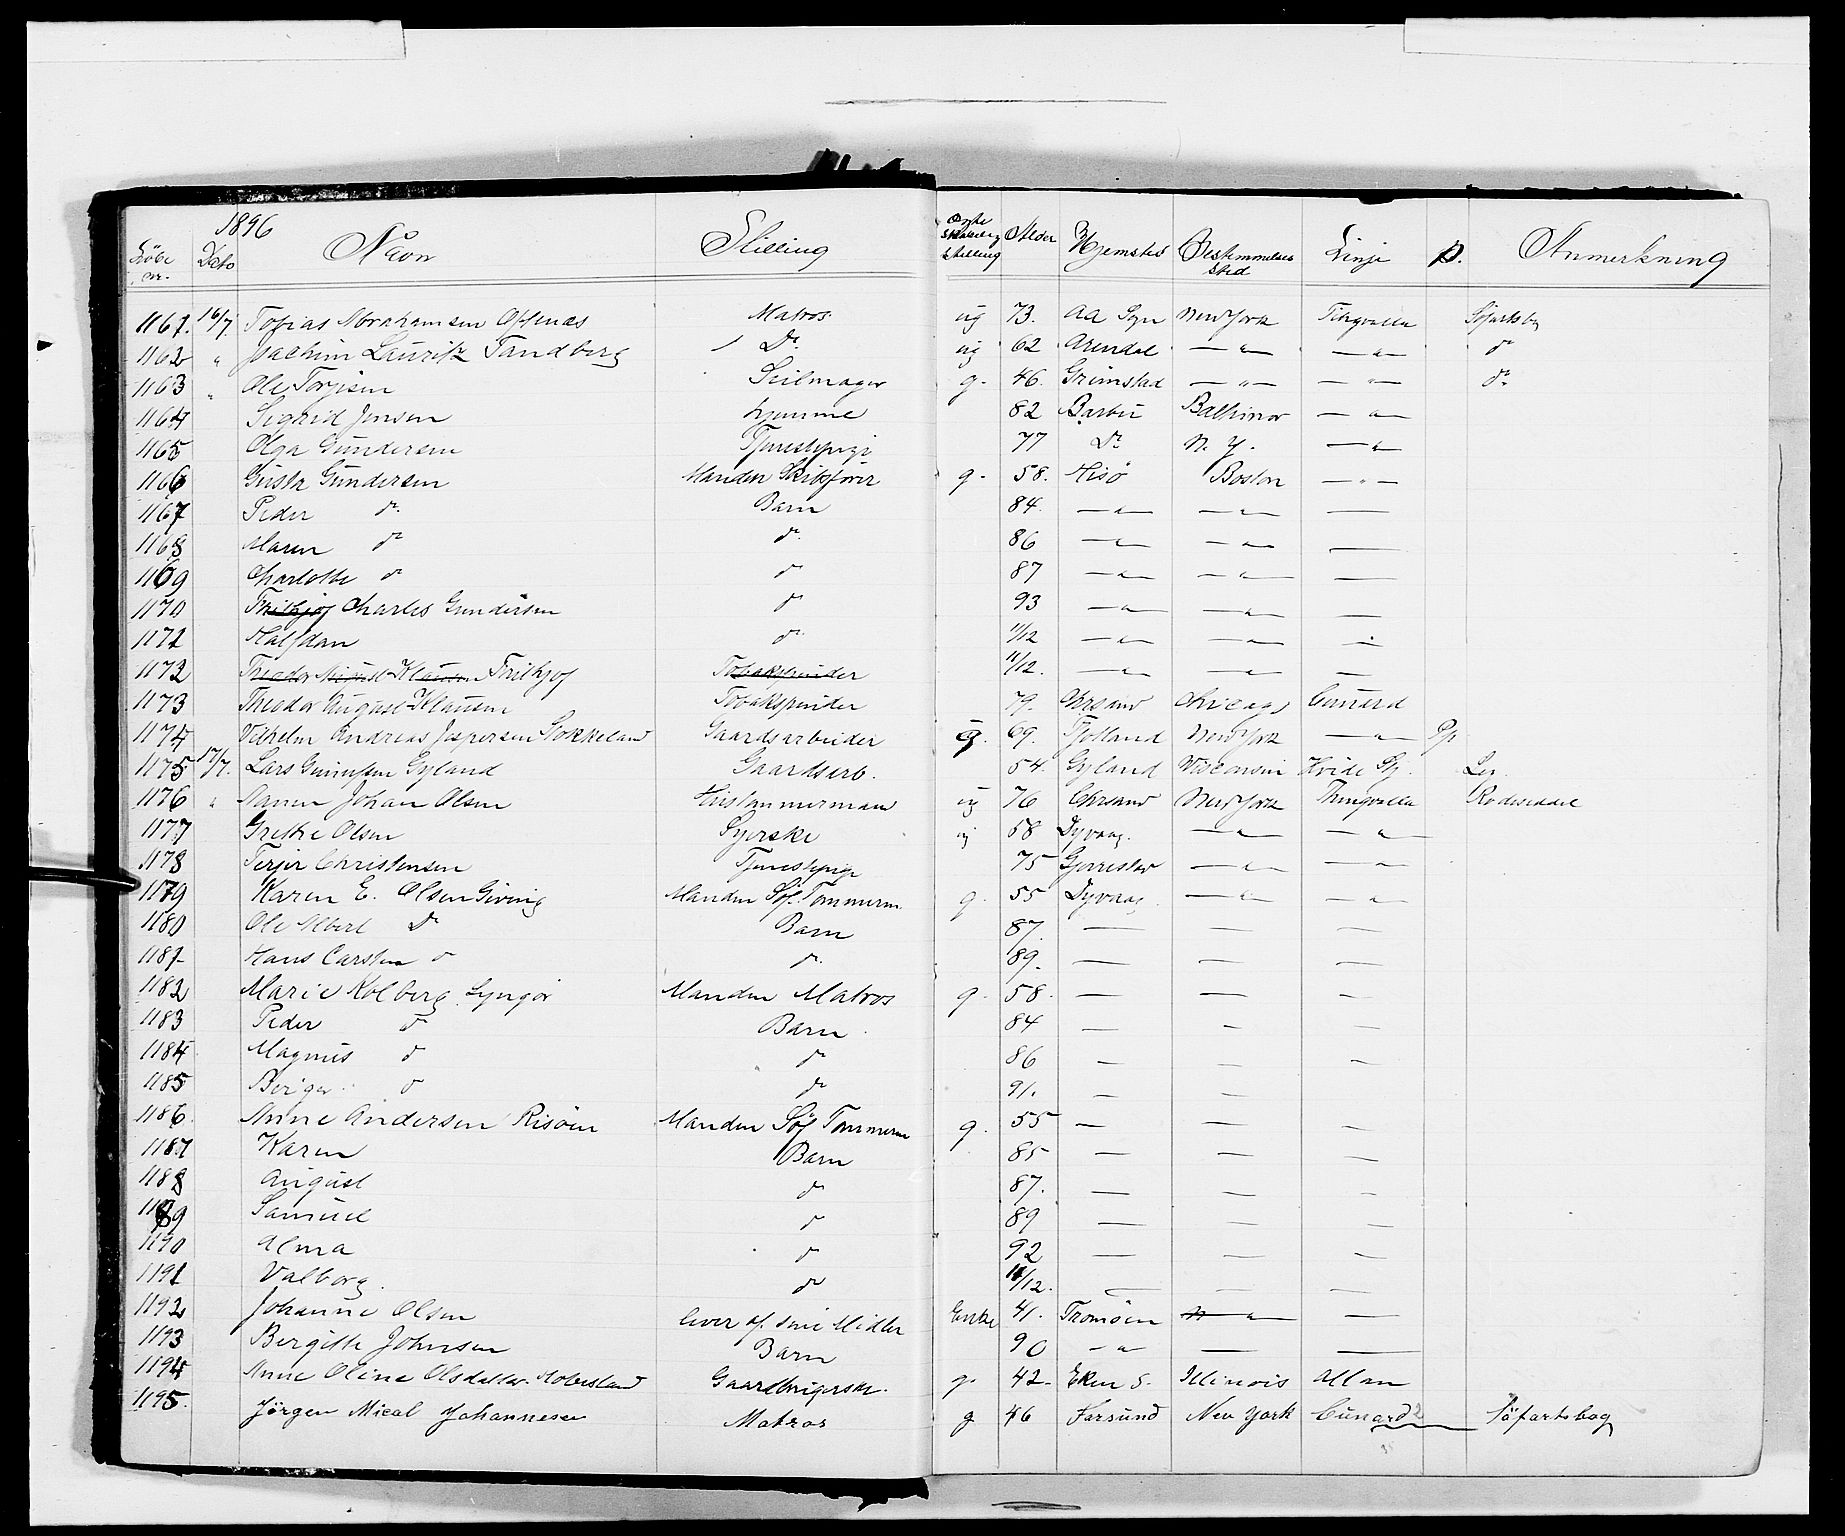 1896
Löbe nr. Dato Navn Stilling Ægte skabelig stilling Alder Hjemsted Bestemmelses sted Linje P. Anmerkning
1161. 16/7. Tobias Abrahamsen Matros ug 73. Aa Sogn New York Tingvalla Söfartsbg
1162 " Joachim Lauritz Tandberg Do ug 62 Arendal — " — — " — do
1163 " Ole Torjisen Seilmager g. 46. Grimstad — " — — " — do
1164 Sigrid Jensen hjemme 82 Barbu Baltimor — " —
1165 Olga Gundersen Tjenestepige 77 Do N. Y. — "
1166 Gusta Gundersen Manden Skibsförer g. 58. Hisö Boston — " —
1167 Peder do Barn 84. — " — — " — —
1168 Maren do do 86 — " — — " — —
1169 Charlotte do do 87 — " — — " — —
1170 Frithjof Charles Gundersen do 93 — " — — " — —
1171 Halfdan do 11/12 — " — — " — —
1172 Theodor August Klausen Frithjof Tobakspinder 11/12. — " — — " — —
1173 Theodor August Klausen Tobakspinder 79. Chrsand Chicago Cunard
1174 Vilhelm Andreas Jespersen Sokkeland Gaardsarbeider g. 69. Fjotland New York — " —
1175 17/7. Lars Gunufsen Gyland Gaardsarb. 54. Gyland Wisconsin Hvide Stj.
1176 " Johan Olsen Hustømmermand ug 76 Chrsand New York Thingvalla Rodeseddel
1177 Grethe Olsen Syerske ug 58 Dyvaag. — " — — " —
1178 Terjer Christensen Tjenestepige 75 Gjerrestad — " — — " —
1179 Karen E. Olsen Giving Manden Söf. Tømmerm. g. 55 Dyvaag — " — — " —
1180 Ole Albert Do Barn 87. — — —
1181 Hans Carsten do do 89. — — —
1182 Marie Kolberg Lyngör Manden Matros g. 58. — — —
1183 Peder do Barn 84 — — —
1184 Magnus do do 86 — — —
1185 Beriger do do 91. — — —
1186 Anne Andersen Risöen Manden Söf Tømmerm g. 55 — — —
1187 Karen Barn 85 — — —
1188 August do 87. — — —
1189 Samuel do 89 — — —
1190 Alma do 92 — — —
1191 Valborg. do 11/12. — — —
1192 Johanne Olsen lever af sine Midler Enke 41. Tromöen — " — —
1193 Bergitte Johnsen Barn 90 — " — —
1194 Anne Oline Olsdatter Gaardbrugerske. g. 42. Eken S. Illinois Allan
1195. Jörgen Mical Johannesen Matros g 46 Farsund New York Cunard Söfartsbog